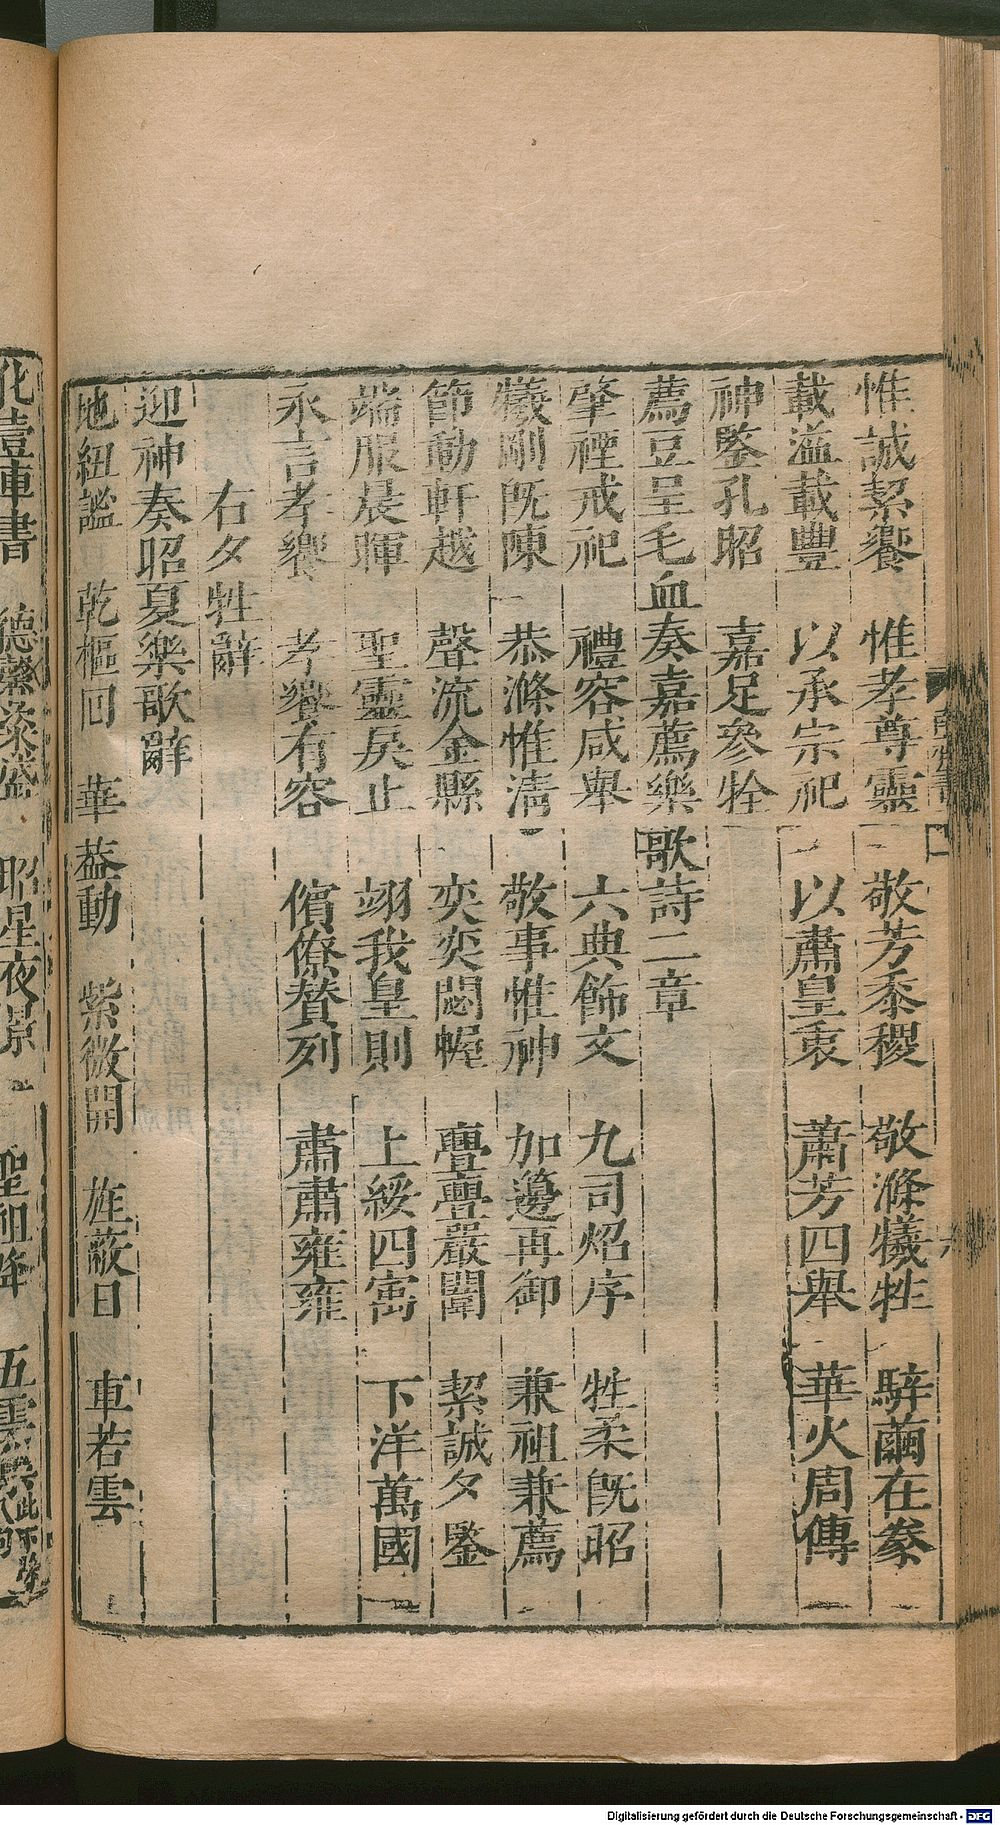 惟誠絜饗　惟孝尊靈　敬芳黍稷　敬滌犧牲　騂繭在豢
載溢載豐　以承宗祀　以肅皇衷　蕭芳四舉　華火周傳
神鑒孔昭　嘉足參牷
薦豆呈毛血奏嘉薦樂歌詩二章
肇禋戒祀　禮容咸舉　六典飾文　九司炤序　牲柔旣昭
犧剛旣陳　恭滌惟清　敬事惟神　加籩再御　兼祖兼薦
節動軒越　聲流金縣　奕奕閟幄　亹亹嚴闈　絜誠夕鑒
端服晨暉　聖靈戾止　翊我皇則　上綏四㝢　下洋萬國
永言孝饗　孝饗有容　儐僚贊列　肅肅雍雍
右夕牲辭
迎神奏昭夏樂歌辭
地紐謐　乾樞回　華蓋動　紫微開　旌蔽日　車若雲
化壹車書　德馨粢盛　昭星夜景　聖祖降　五雲集此下除八句
Digitalisierung gefördert durch die Deutsche Forschungsgemeinschaft - DFG